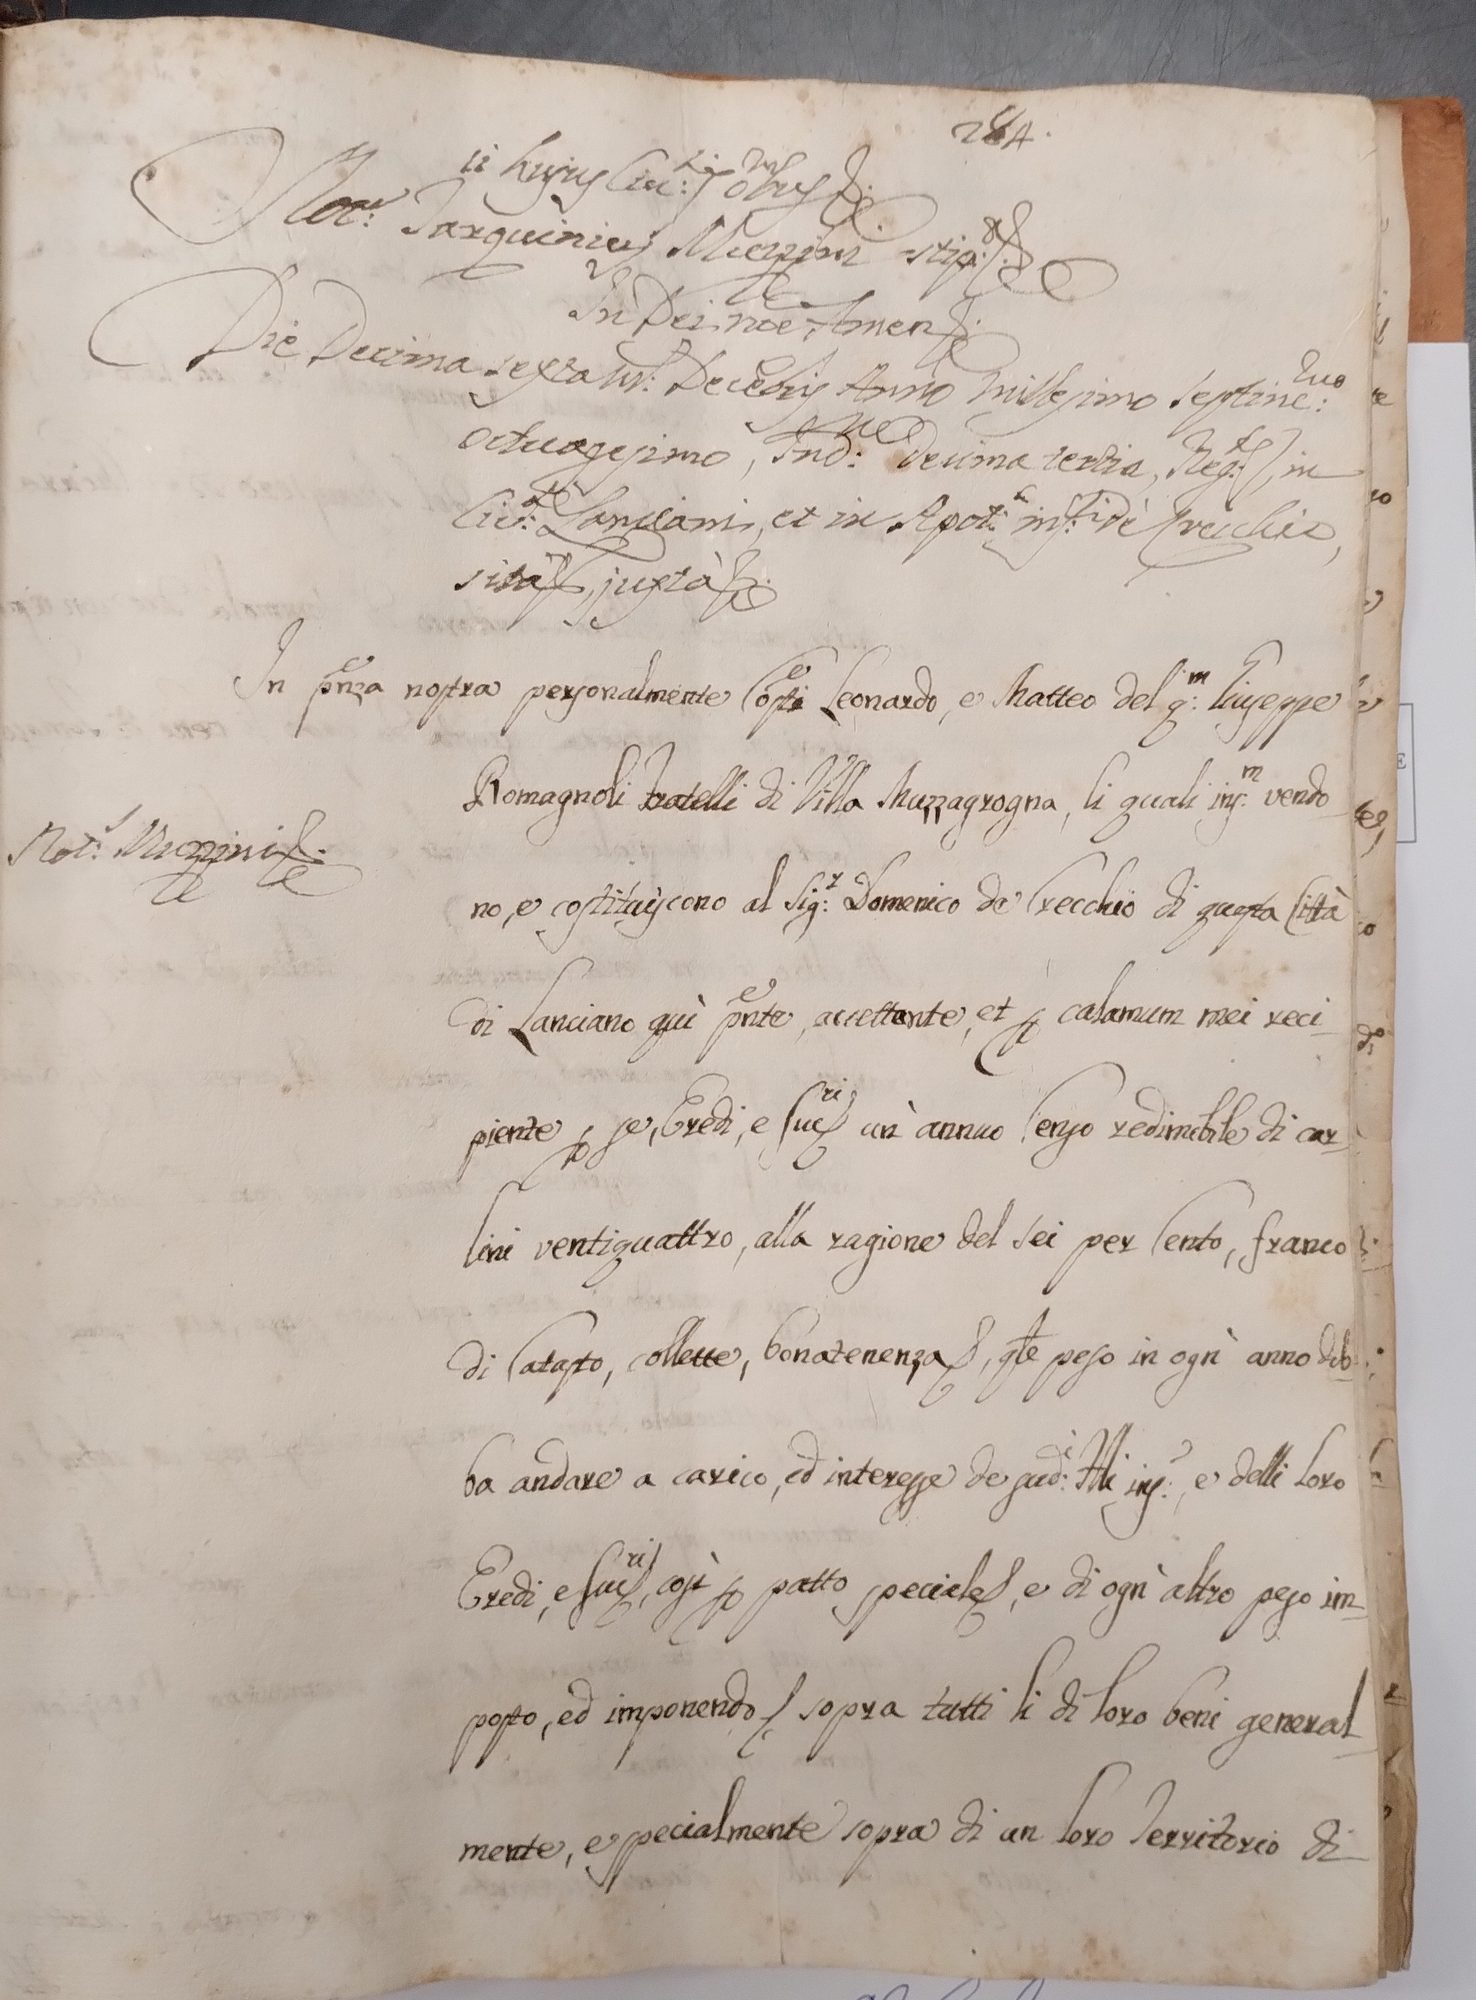 284.
ii hujus Civ:tis omnibus
Not: Tarquinius Mezzini stip:
In Dei nõe Amen
Die Decima sexta m: Decēbris Anno millesimo Septinc:mo
octuagesimo, Ind:ne decima tertia, Reg:, in
Civ:te Lanciani, et in Apot:ca inf:ti de Crecchio,
sita, juxta
In pñza nostra personalmente Cos̃ti Leonardo, e Matteo del q:m Giuseppe
Romagnoli fratelli di Villa Mozzagrogna, li quali ins:m vendo
no, e costituiscono al Sig:r Domenico de Crecchio di questa Città
di Lanciano quì pñte, accettante, et p calamum mei reci-
piente p se, Eredi, e Succ:ri un annuo Censo redimibile di car
lini ventiquattro, alla ragione del sei per Cento, franco
di Catasto, collette, bonatenenza, qle peso in ogni anno deb
ba andare a carico, ed interesse de sud:i Fllĩ ins:, e delli loro
Eredi, e Succ:ri, così p patto speciale, e di ogni altro peso im-
posto, ed imponendo sopra tutti li di loro beni general
mente, e specialmente sopra di un loro Territorio di
Not:r Mezzini